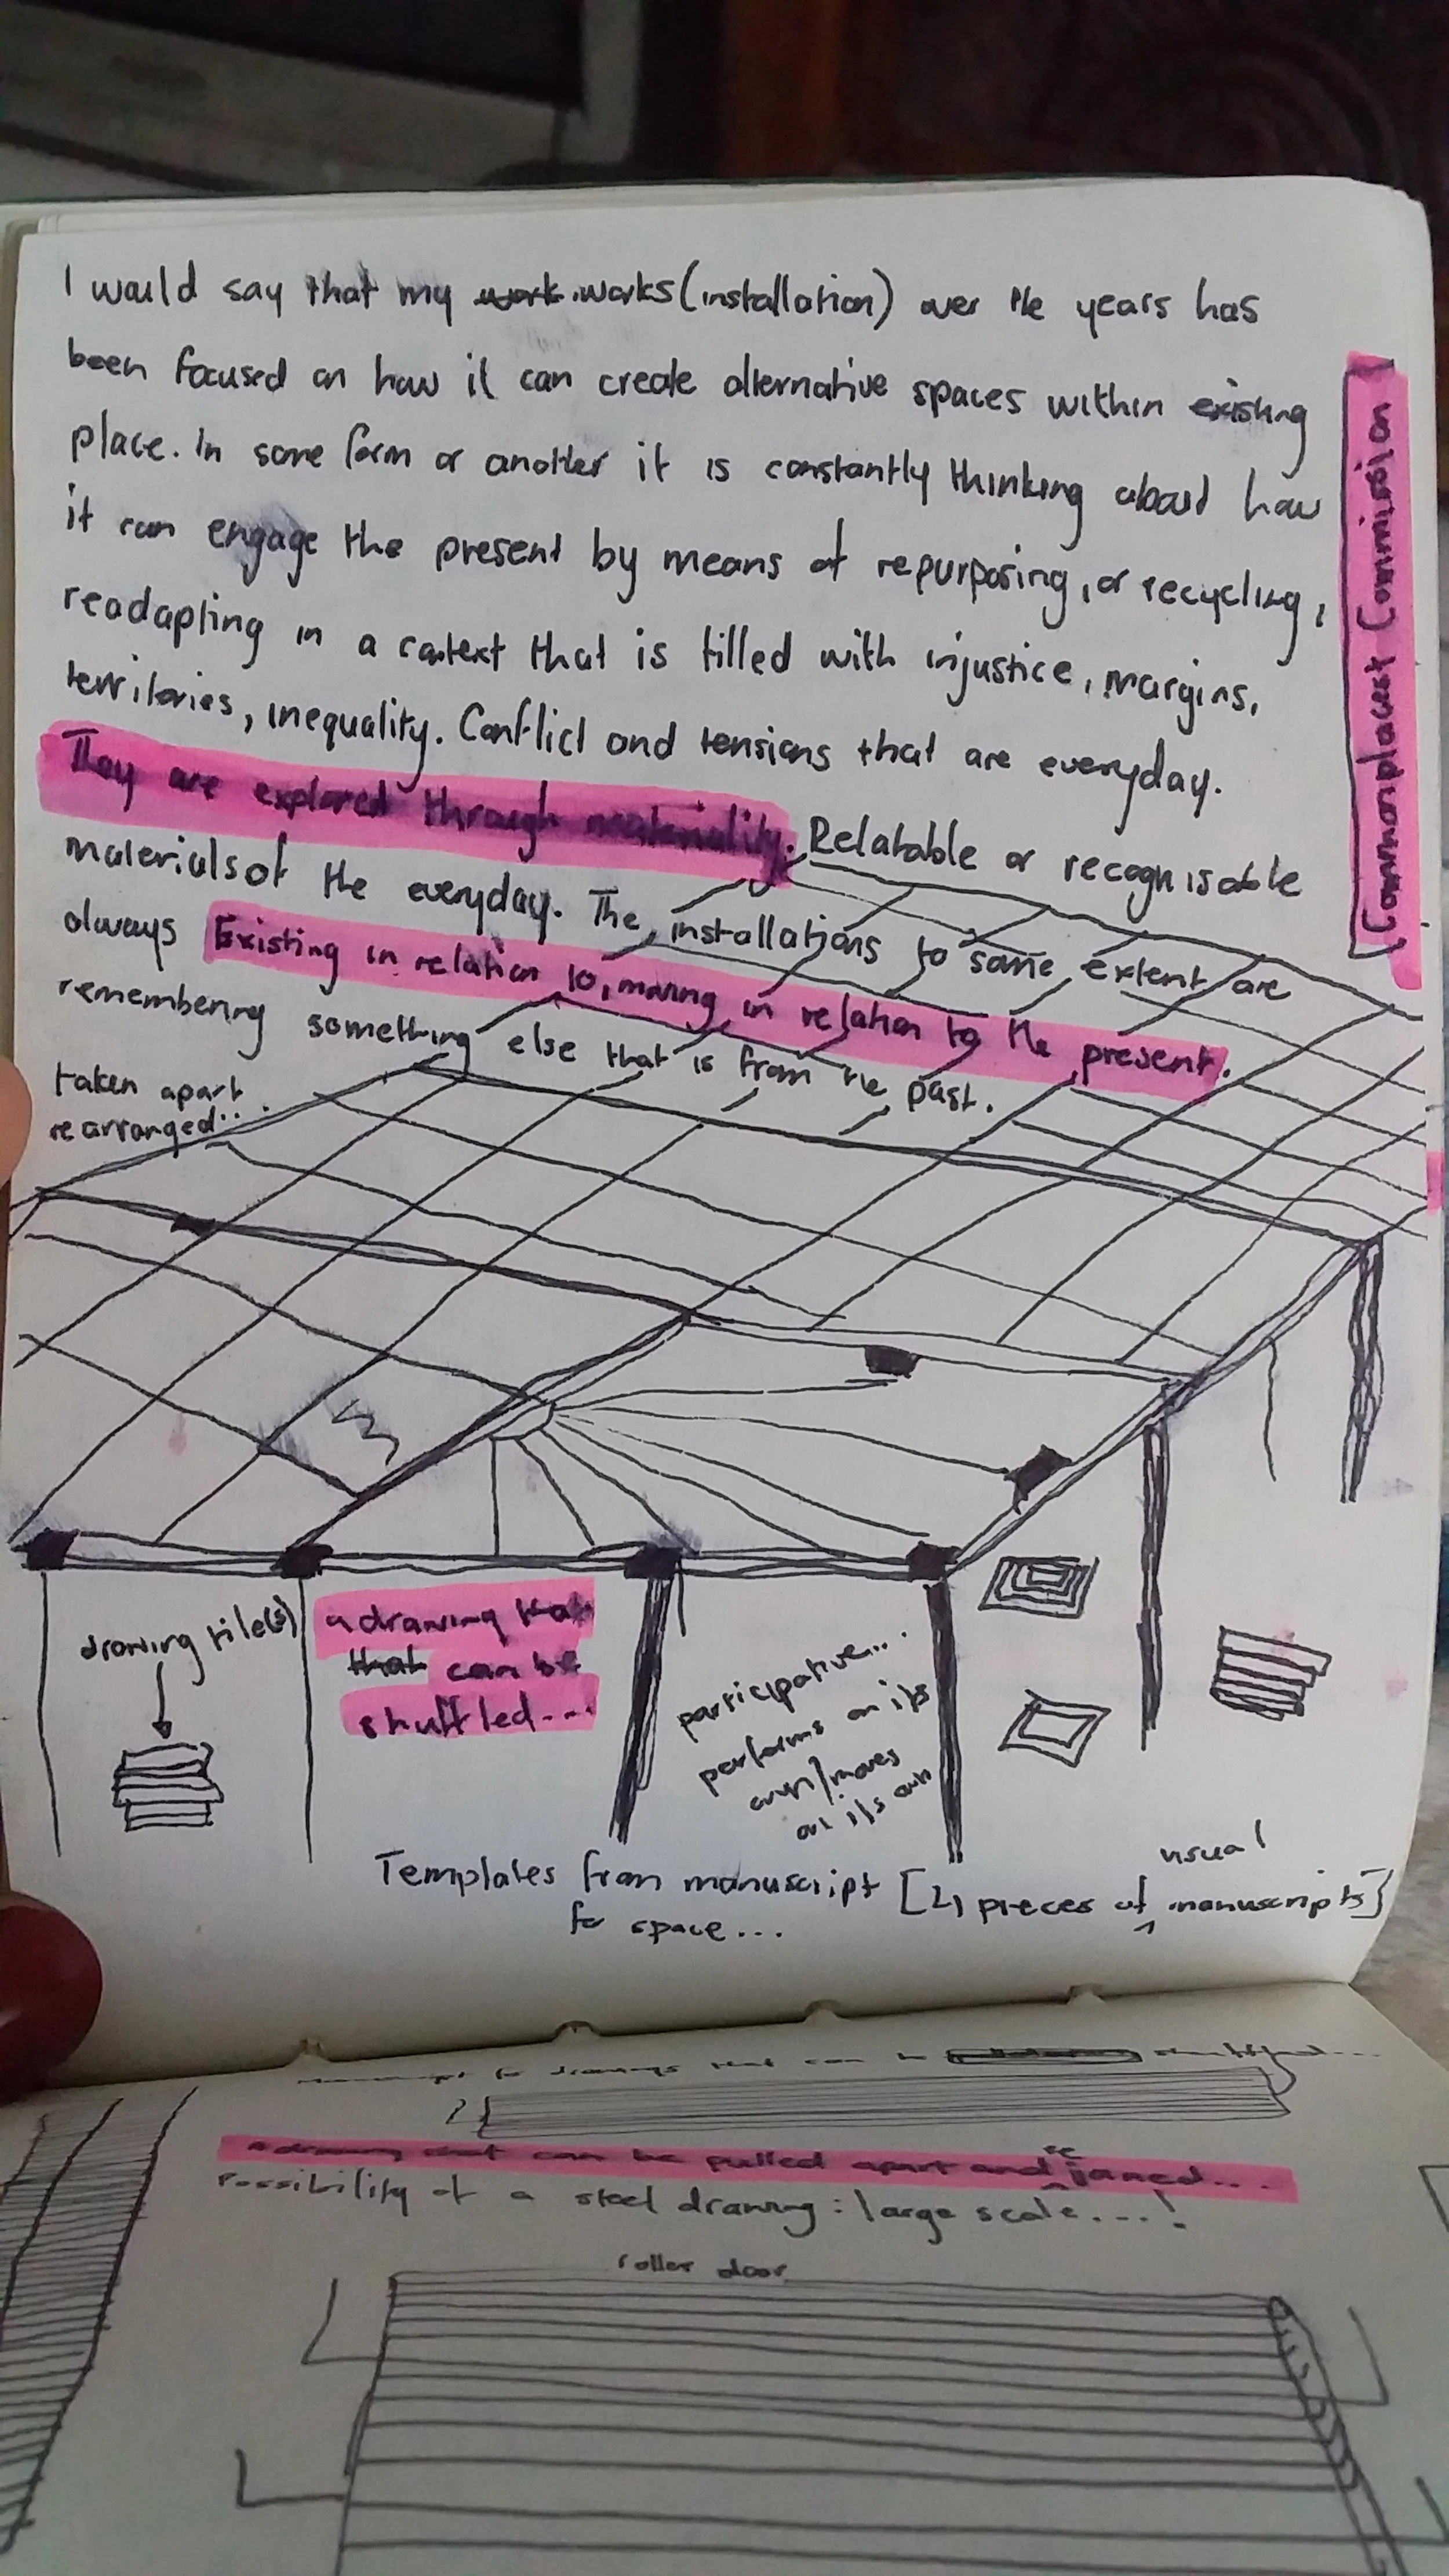 I would say that my work works (installation) over the years has
been focused on how it can create alternative spaces within existing
place. In some form or another it is constantly thinking about how
it can engage the present by means of repurposing, or recycling,
readapting in a context that is filled with injustice, margins,
territories, inequality. Conflict and tensions that are everyday.
They are explored through materiality. Relatable or recognisable
materials of the everyday. The installations to some extent are
always Existing in relation to, moving in relation to the present.
remembering something else that is from the past.
taken apart
rearranged...
Commonplacest Commission
drawing tile(s)
a drawing that
that can be
shuffled...
participative....
performs on its
own/moves
on its own
Templates from manuscript [21 pieces of usual manuscripts]
for space...
for drawings that can be
a drawing that can be pulled apart and re joined...
Possibility of a steel drawing : large scale....!
roller door